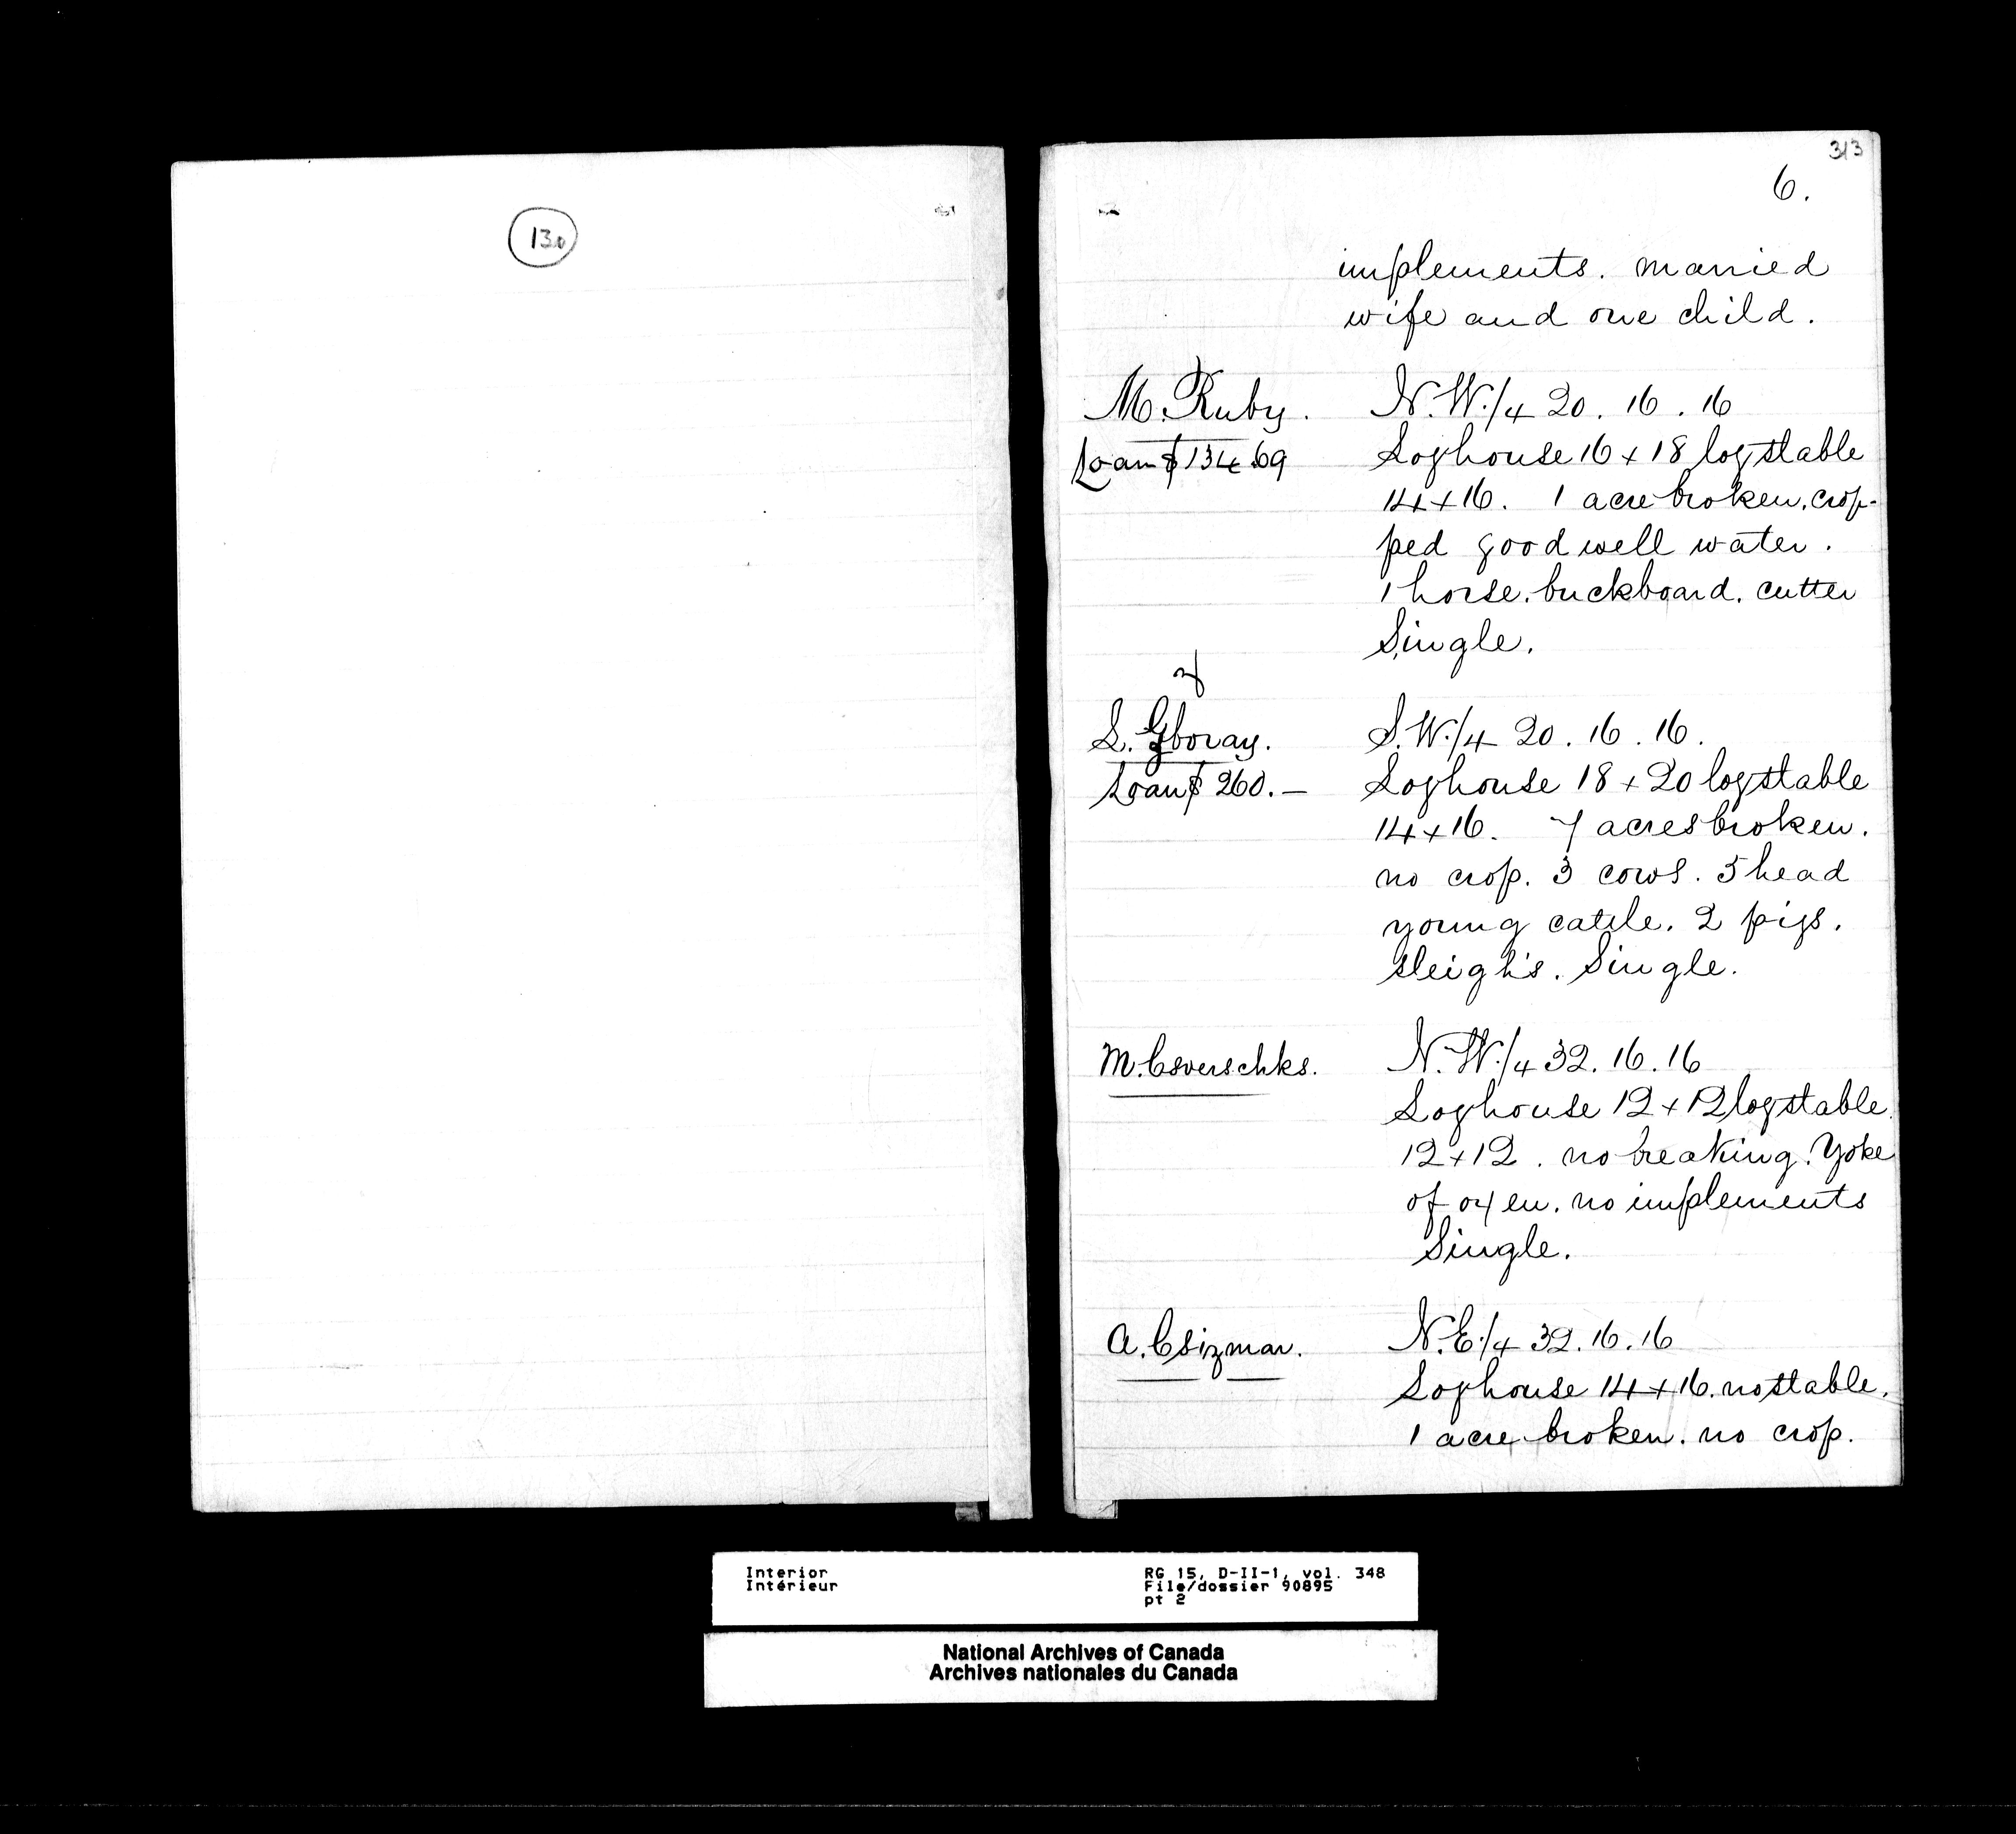 130
313
6.
implements. married
wife and one child.
M. Ruby. N.W./4 20. 16. 16
Loan $134.69 Loghouse 16 x 18 logstable
14 x 16. 1 acre broken. crop-
ped good well water.
1 horse. buckboard. cutter
Single.
L. Gboray. S.W./4 20. 16. 16.
Loan $ 260.— Loghouse 18 x 20 logstable
14 x 16. 7 acres broken.
no crop. 3 cows. 5 head
young cattle. 2 pigs.
sleighs. Single.
M. Csverschks. N.W./4 32. 16. 16
Loghouse 12 x 12 logstable
12 x 12. no breaking. Yoke
of oxen. no implements
Single.
A. Csizmar. N.E./4 32. 16. 16
Loghouse 14 x 16. no stable.
1 acre broken. no crop.
Interior RG 15, D-II-1, vol. 348
Intérieur File/dossier 90895
pt 2
National Archives of Canada
Archives nationales du Canada